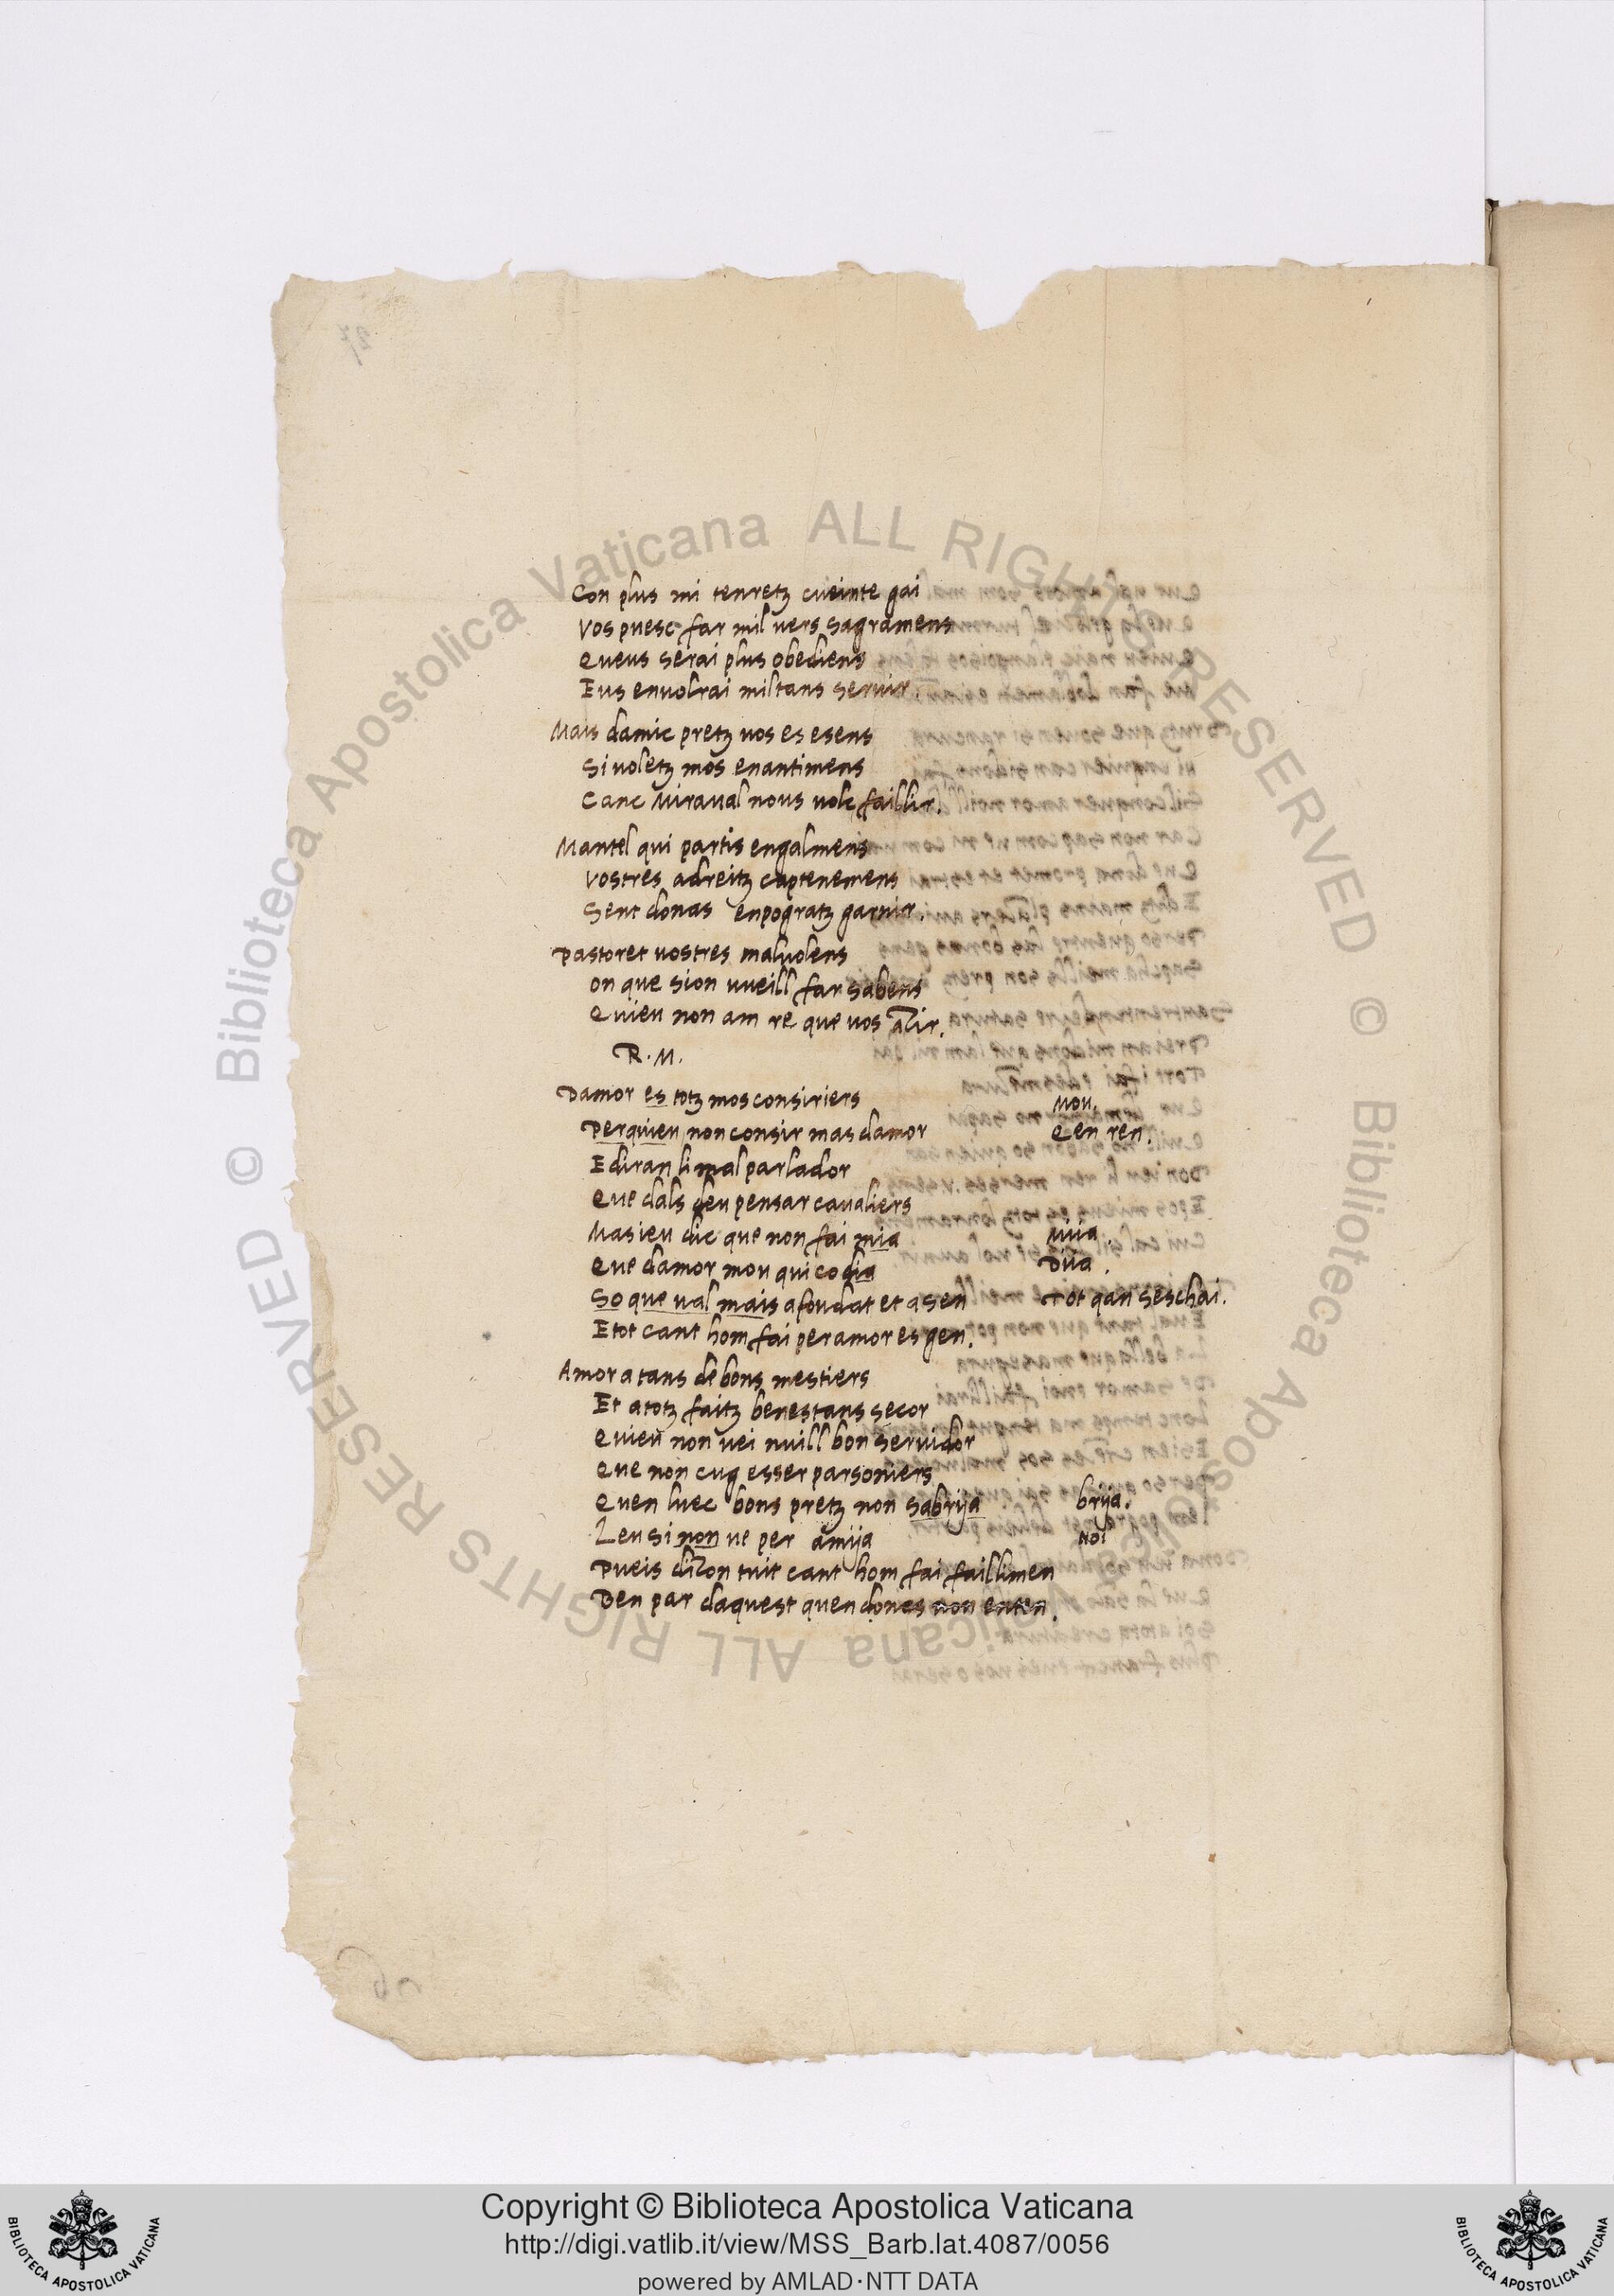 Con plus mi tenretz cueinte gai
Vos puesc far mil uers sagramens
Queus serai plus obediens
Eus enuolrai miltans seruir.
Mais damic pretz uos es esens
Si uoletz mos enantimens
Canc Miraual nous uolc faillir.
Mantel qui partis engalmens
Vostres adreitz captenemens
Sent donas enpogratz garnir.
Pastoret uostres maluolens
On que sion uueill far sabens
Quieu non am re que uos air.
R. M.
Damor es totz mos consiriers Mou.
Perquieu non consir mas damor Qen ren.
E diran li mal parlador
Que dals deu pensar caualiers
Mas ieu dic que non fai mia Miia.
Que damor mou qui co dia Diia.
So que ual mais afoudat et asen Tot qan seschai.
E tot cant hom fai per amor es gen.
Amor a tans de bons mestiers
Et atotz faitz benestans secor
Quieu non uei nuill bon seruidor
Que non cug esser parsoniers
Quen luec bons pretz non sabrija brija.
Leu si non ue per amija noi
Pueis dizon tuit cant hom fai faillimen
Ben par daquest quen dones non enten.
Copyright © Biblioteca Apostolica Vaticana
http://digi.vatlib.it/view/MSS_Barb.lat.4087/0056
powered by AMLAD·NTT DATA
BIBLIOTECA APOSTOLICA VATICANA
BIBLIOTECA APOSTOLICA VATICANA
© Biblioteca Apostolica Vaticana ALL RIGHTS RESERVED
© Biblioteca Apostolica Vaticana ALL RIGHTS RESERVED